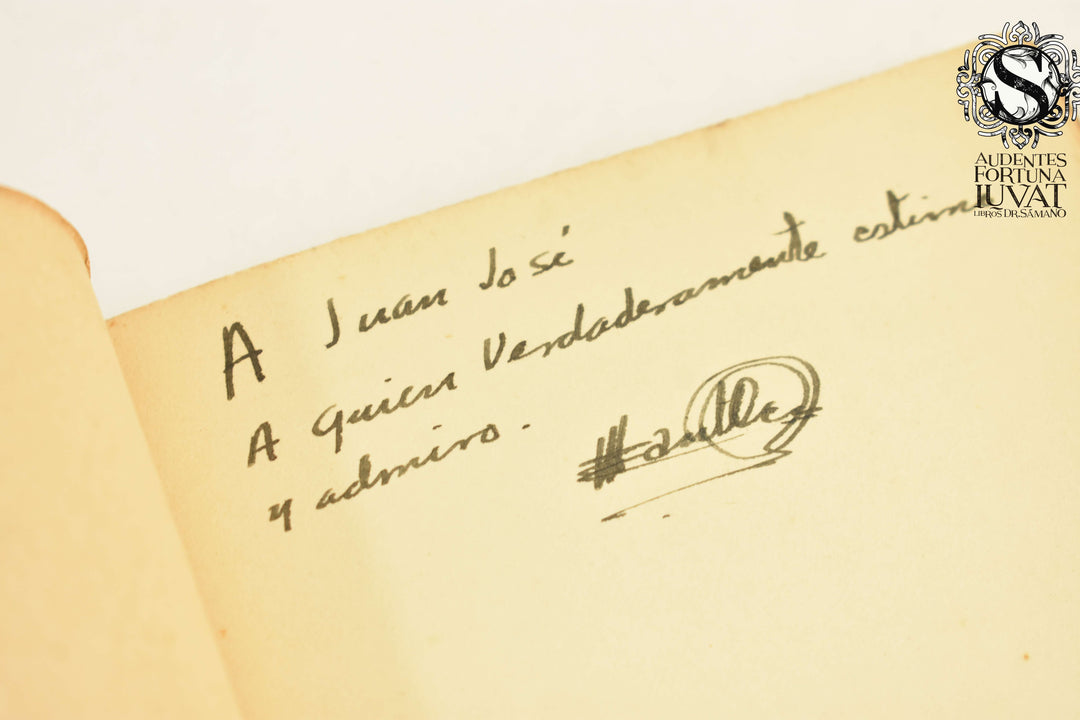 A Juan José
A quien Verdaderamente estimo
y admiro.
S
AUDENTES
FORTUNA
IUVAT
LIBROS DR. SÁMANO